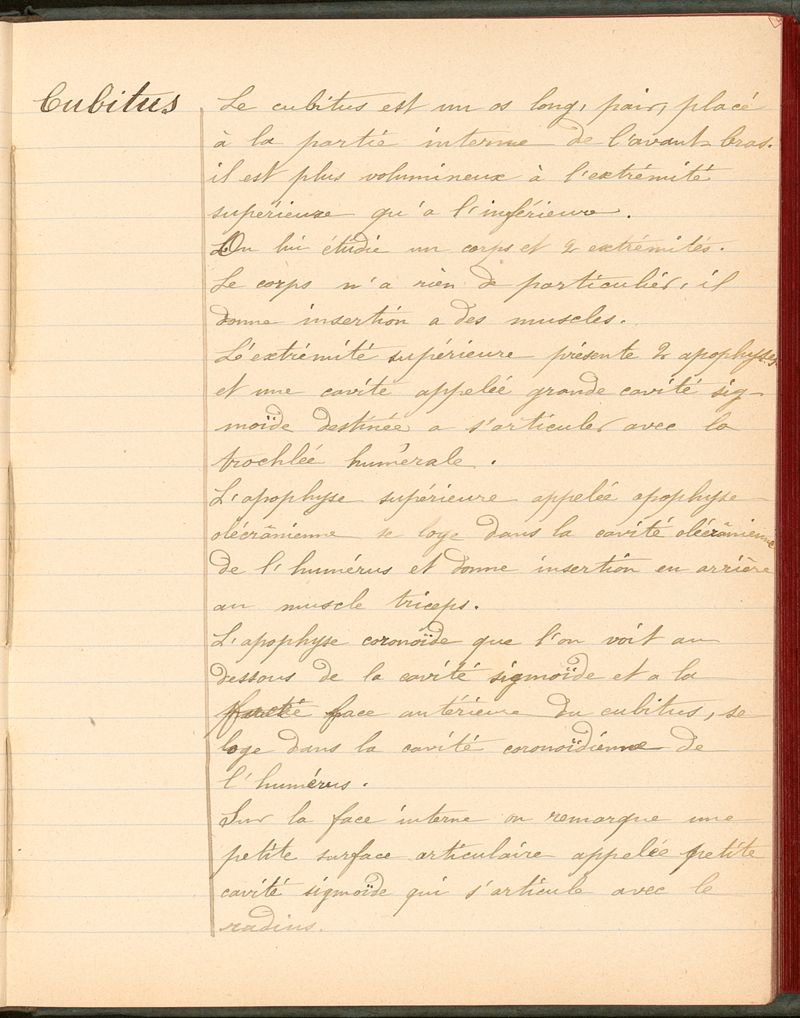 Cubitus
Le cubitus est un os long, pair, placé
à la partie interne de l'avant-bras.
il est plus volumineux à l'extrémité
supérieure qu'a l'inférieure.
On lui étudie un corps et 2 extrémités.
Le corps n'a rien de particulier, il
donne insertion a des muscles.
L'extrémité supérieure présente 2 apophyses
et une cavité appelée grande cavité sig-
moïde destinée a s'articuler avec la
trochlée humérale.
L'apophyse supérieure appelée apophyse
olécrânienne se loge dans la cavité olécrânienne
de l'humérus et donne insertion en arrière
au muscle triceps.
L'apophyse coronoïde que l'on voit au
dessous de la cavité sigmoïde et a la
face antérieure du cubitus, se
loge dans la cavité coronoïdienne de
l'humérus.
Sur la face interne on remarque une
petite surface articulaire appelée petite
cavité sigmoïde qui s'articule avec le
radius.